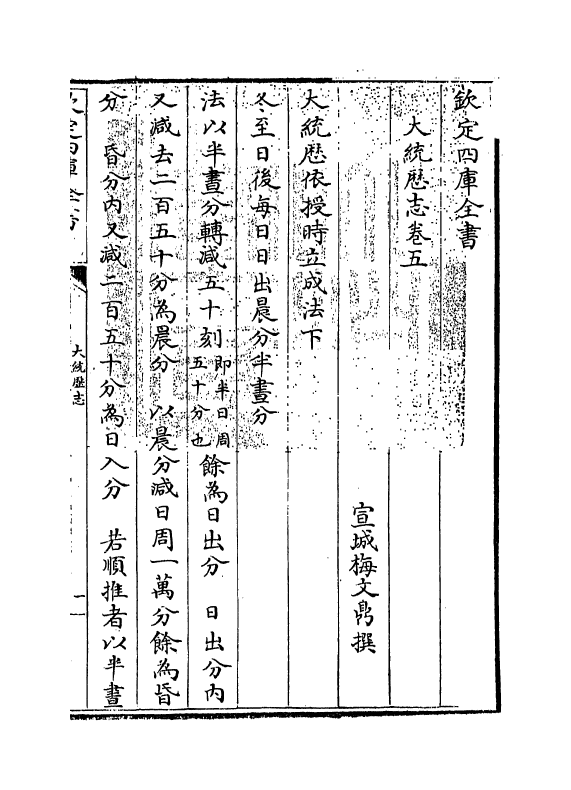 欽定四庫全書
大統歴志卷五
宣城梅文鼎撰
大統歴依授時立成法下
冬至日後每日日出晨分半晝分
法以半晝分轉減五十刻即半日周五十分也餘為日出分　日出分內
又減去二百五十分為晨分　以晨分減日周一萬分餘為昏
分　昏分內又減二百五十分為日入分　若順推者以半晝
大統歴志
一